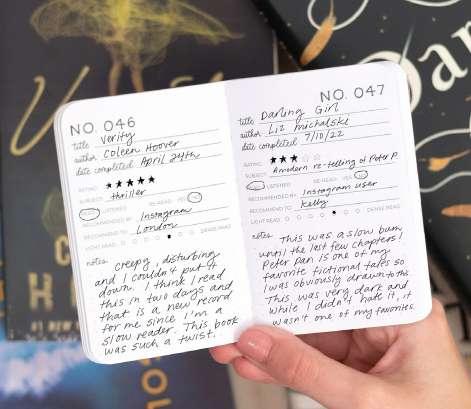 NO. 046
title Verity
author Coleen Hoover
date completed April 24th
RATING ★★★★★
SUBJECT thriller
READ LISTENED RE-READ: YES NO
RECOMMENDED BY Instagram
RECOMMEND TO London
LIGHT READ DENSE READ
notes creepy, disturbing
and I couldn't put it
down. I think I read
this in two days and
that is a new record
for me since I'm a
slow reader. This book
was such a twist.
NO. 047
title Darling Girl
author Liz Michalski
date completed 7/10/22
RATING ★★★
SUBJECT A modern re-telling of Peter P.
READ LISTENED RE-READ: YES NO
RECOMMENDED BY Instagram user
RECOMMEND TO Kelly
LIGHT READ DENSE READ
notes This was a slow burn
until the last few chapters!
Peter Pan is one of my
favorite fictional tales so
I was obviously drawn to this.
This was very dark and
while I didn't hate it, it
wasn't one of my favorites.
#1 NEW
Dar